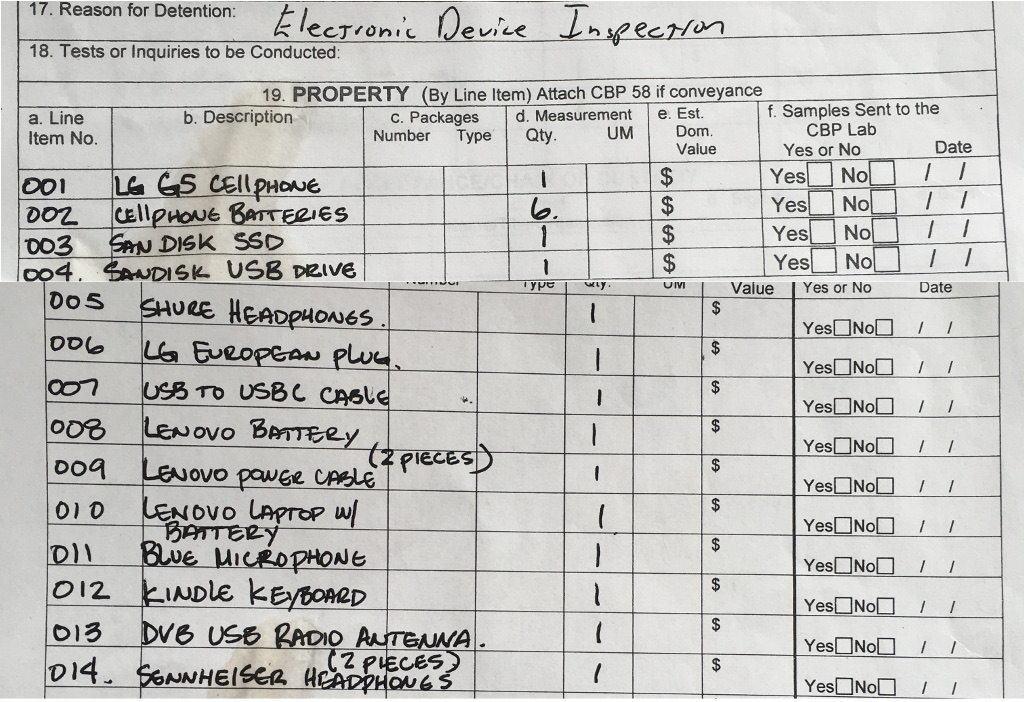 17. Reason for Detention: Electronic Device Inspection
18. Tests or Inquiries to be Conducted:
19. PROPERTY (By Line Item) Attach CBP 58 if conveyance
a. Line Item No. b. Description c. Packages Number Type d. Measurement Qty. UM e. Est. Dom. Value f. Samples Sent to the CBP Lab Yes or No Date
001 LG G5 CELLPHONE 1 $ Yes No / /
002 CELLPHONE BATTERIES 6. $ Yes No / /
003 SANDISK SSD 1 $ Yes No / /
004. SANDISK USB DRIVE 1 $ Yes No / /
Number Type Qty. UM Value Yes or No Date
005 SHURE HEADPHONES. 1 $ Yes No / /
006 LG EUROPEAN PLUG. 1 $ Yes No / /
007 USB TO USBC CABLE 1 $ Yes No / /
008 LENOVO BATTERY 1 $ Yes No / /
009 LENOVO POWER CABLE (2 PIECES) 1 $ Yes No / /
010 LENOVO LAPTOP W/ BATTERY 1 $ Yes No / /
011 BLUE MICROPHONE 1 $ Yes No / /
012 KINDLE KEYBOARD 1 $ Yes No / /
013 DVB USB RADIO ANTENNA. 1 $ Yes No / /
014. SENNHEISER HEADPHONES (2 PIECES) 1 $ Yes No / /